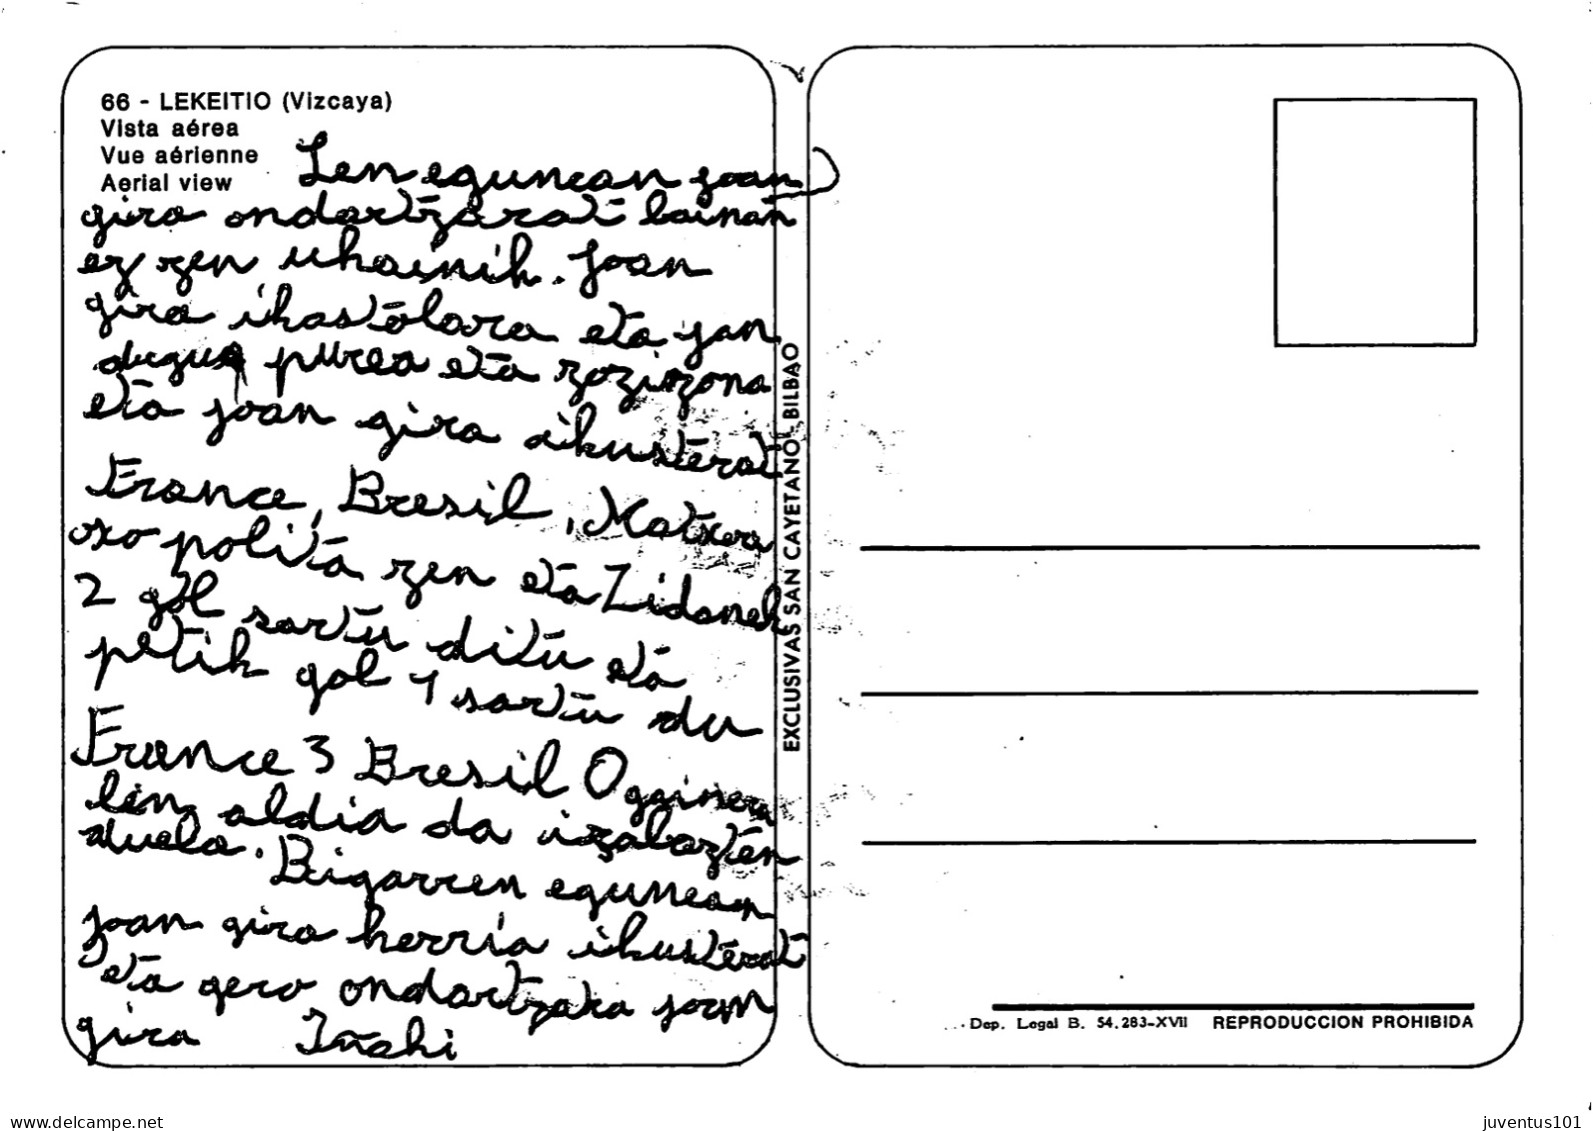 66 - LEKEITIO (Vizcaya)
Vista aérea
Vue aérienne
Aerial view
Len egunean joan
gira ondartzarat bainan
ez zen uhainik. Joan
gira ikastolara eta jan
dugu purea eta zoziozona
eta joan gira ikusterat
France, Bresil, Matxea
oxo polita zen eta Zidanek
2 gol sartu ditu eta
petik gol 1 sartu du
France 3 Bresil 0 gainera
len aldia da izabazten
duela. Bigarren egunean
joan gira herria ikusterat
eta gero ondartzara joan
gira Iñaki
EXCLUSIVAS SAN CAYETANO - BILBAO
Dep. Legal B. 54.283-XVII REPRODUCCION PROHIBIDA
www.delcampe.net
juventus101